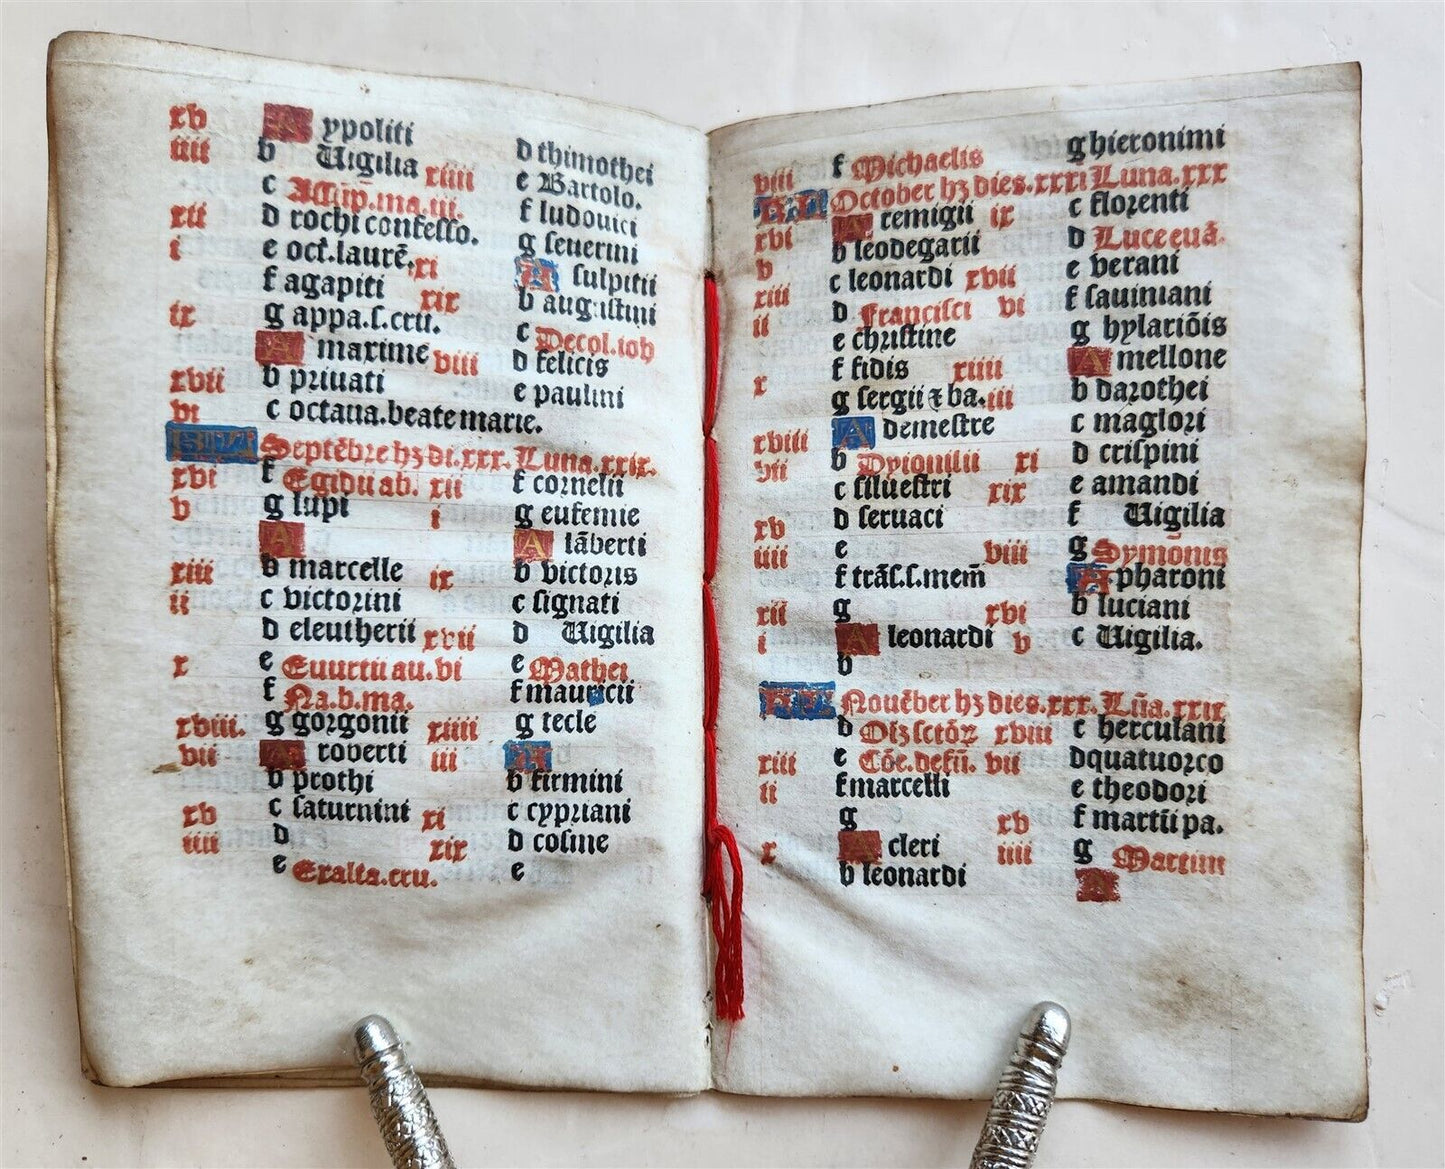 xv A ypoliti
iiii b Uigilia
c Assūp.ma.iii.
xii d rochi confesso.
i e oct.laurē.
f agapiti
ix g appa.s.cru.
A maxime
xvii b priuati
vi c octaua.beate marie.
d thimothei
xiiii e Bartolo.
f ludouici
g seuerini
xi A sulpitii
xix b augustini
c Decol.ioh
viii d felicis
e paulini
KL Septēbre hꝫ di.xxx. Luna.xxix.
xvi f Egidii ab.
v g lupi
A
xiii b marcelle
ii c victorini
d eleutherii
x e Euurtii au.
f Na.b.ma.
xviii. g gorgonii
vii A roberti
b prothi
xv c saturnini
iiii d
e Exalta.cru.
xii f cornelii
i g eufemie
A lāberti
ix b victoris
c signati
xvii d Uigilia
vi e Mathei
f mauricii
xiiii g tecle
iii A
b firmini
xi c cypriani
xix d cosme
e
viii f Michaelis
g hieronimi
KL October hꝫ dies.xxxi Luna.xxx
xvi A remigii
v b leodegarii
xiii c leonardi
ii d Francisci
e christine
f fidis
x g sergii ⁊ ba.
A demestre
xviii b Dyionisii
vii c siluestri
d seruaci
xv e
iiii f trās.s.mem̄
g
xii A leonardi
i b
ix c florenti
d Luce euā.
xvii e verani
vi f sauiniani
g hylariōis
xiiii A mellone
iii b darothei
c maglori
xi d crispini
xix e amandi
f Uigilia
viii g Symonis
A pharoni
xvi b luciani
v c Uigilia.
KL Nouēber hꝫ dies.xxx. Lūa.xxix
d Oīz sctōꝝ
xiii e Cōe.defū.
ii f marcelli
g
x A cleri
b leonardi
xviii c herculani
vii d quatuorco
e theodori
xv f martii pa.
iiii g Martini
A